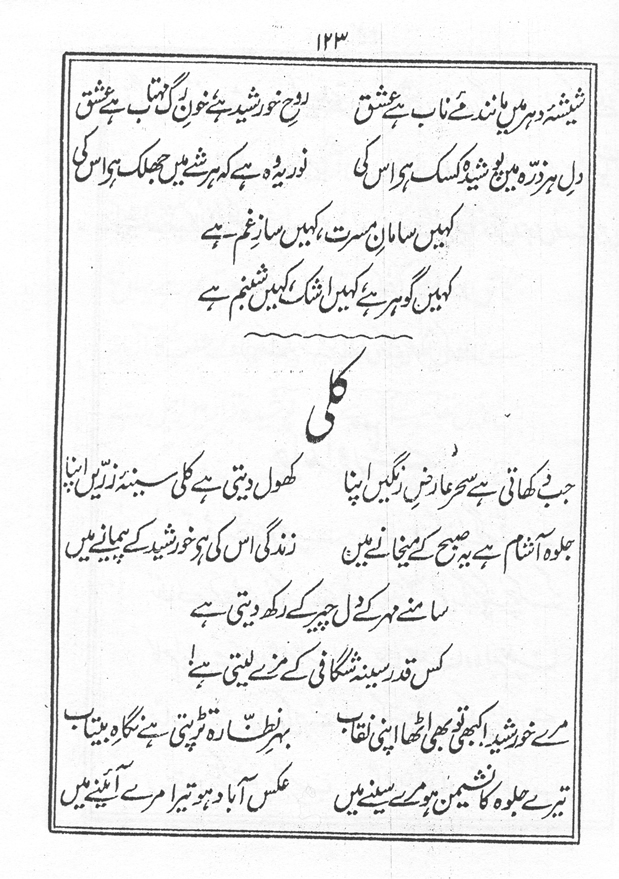 ۱۲۳
شیشۂ دہر میں مانند مئے ناب ہے عشق روحِ خورشید ہے، خونِ رگِ مہتاب ہے عشق
دلِ ہر ذرّہ میں پوشیدہ کسک ہی اس کی نور یہ وہ ہے کہ ہر شے میں جھلک ہی اس کی
کہیں سامانِ مسرت، کہیں سازِ غم ہے
کہیں گوہر ہے، کہیں اشک، کہیں شبنم ہے
کلی
جب دکھاتی ہے سحر عارضِ رنگیں اپنا کھول دیتی ہے کلی سینۂ زرّیں اپنا
جلوہ آشام ہے یہ صبح کے میخانے میں زندگی اس کی ہی خورشید کے پیمانے میں
سامنے مہر کے دل چیر کے رکھ دیتی ہے
کس قدر سینہ شگافی کے مزے لیتی ہے!
مرے خورشید! کبھی تو بھی اٹھا اپنی نقاب بہرِ نظّارہ تڑپتی ہے نگاہِ بیتاب
تیرے جلوہ کا نشیمن ہو مرے سینے میں عکس آباد ہو تیرا مرے آئینے میں